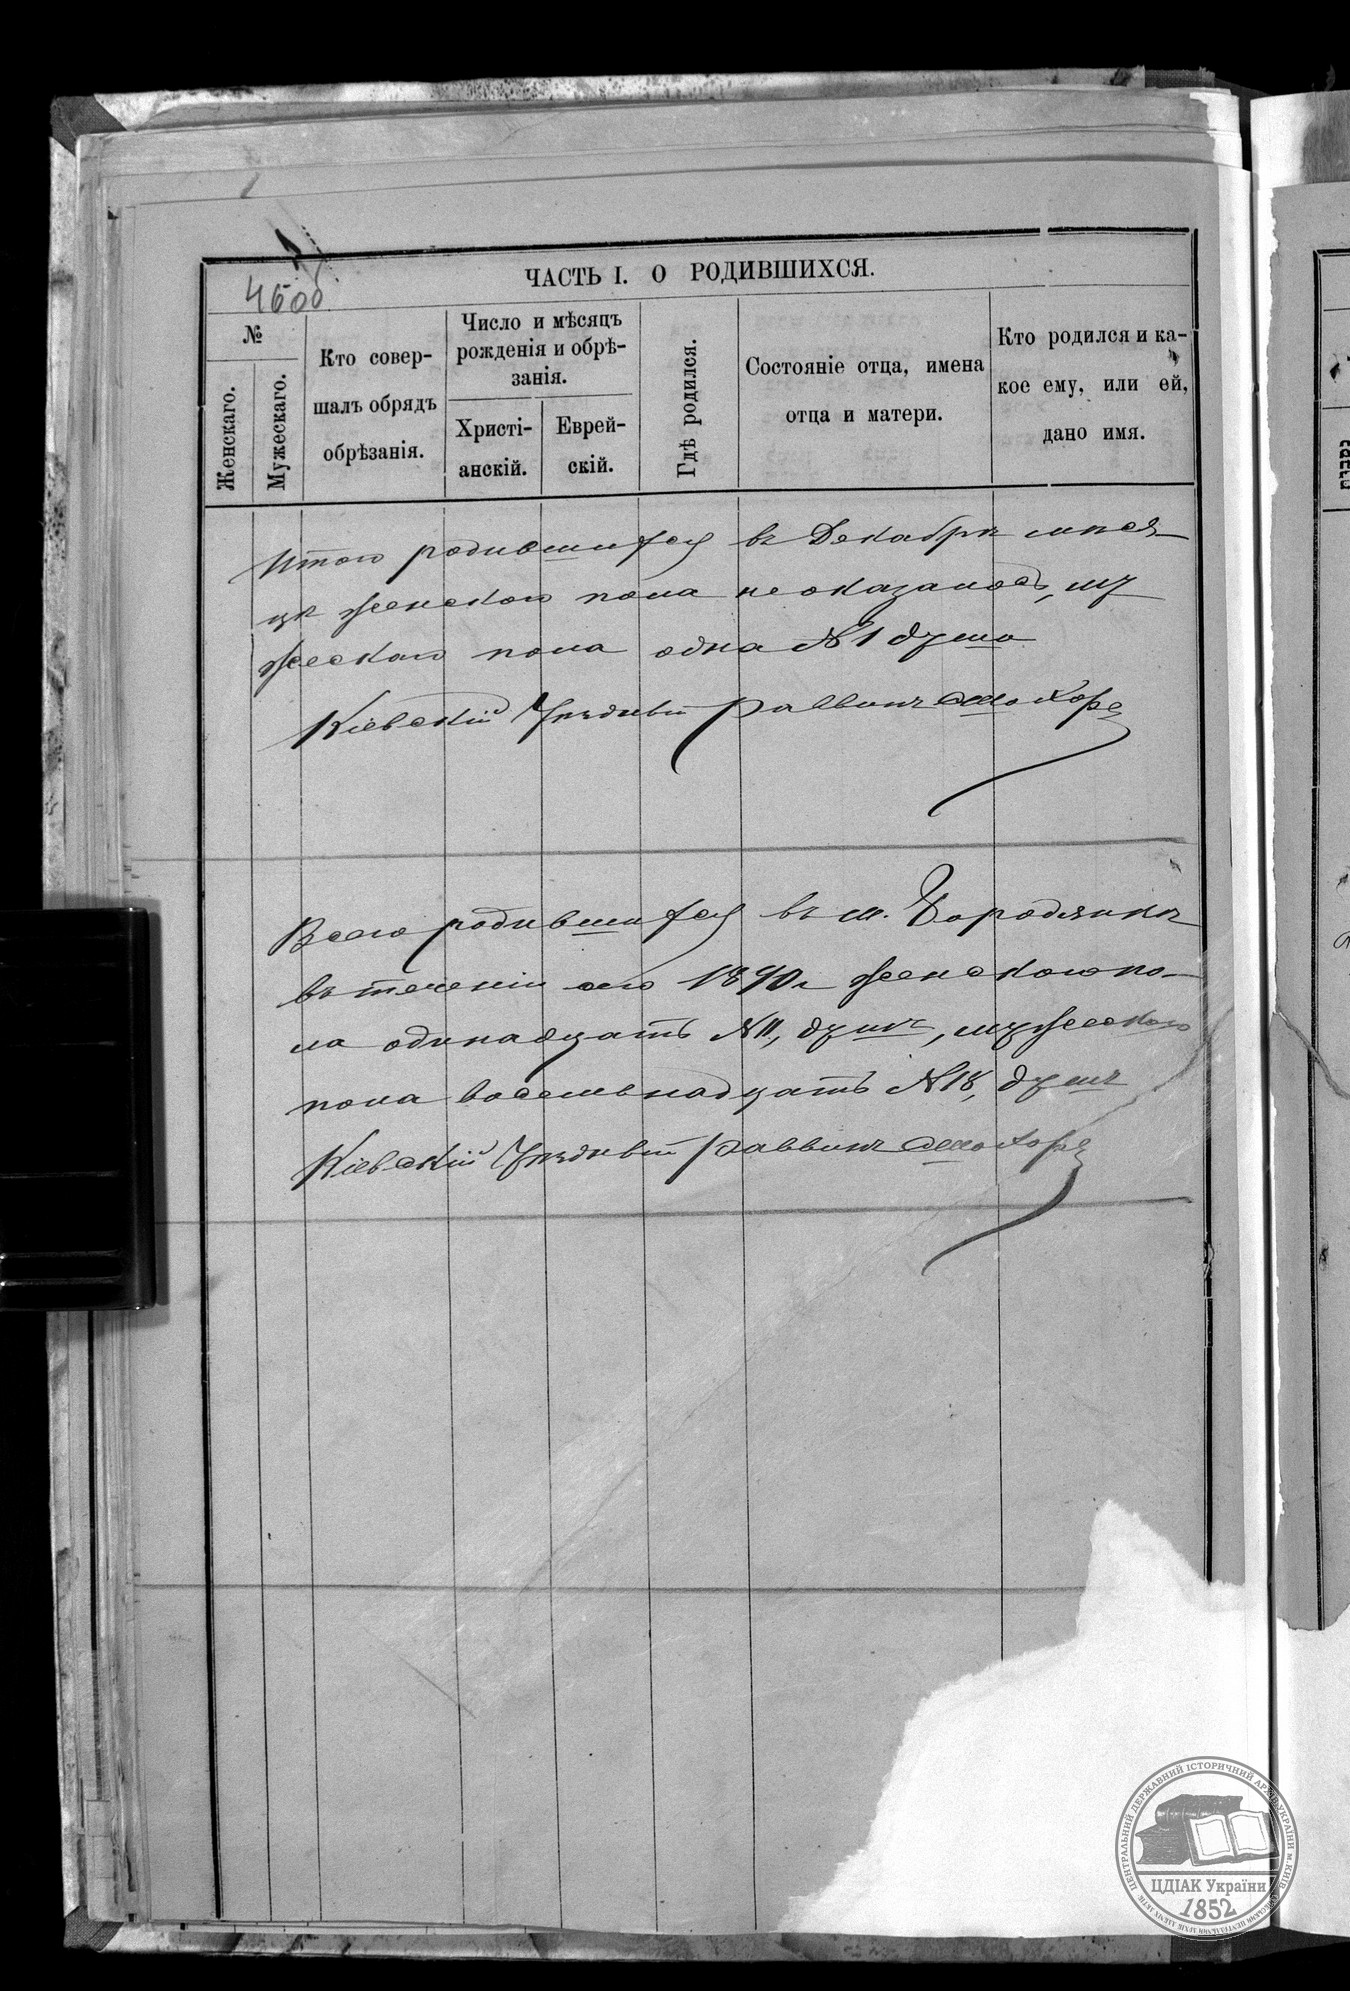 ЧАСТЬ I. О РОДИВШИХСЯ.
№
Женскаго.
Мужескаго.
Кто совер-
шалъ обрядъ
обрѣзанія.
Число и мѣсяцъ
рожденія и обрѣ-
занія.
Христі-
анскій.
Еврей-
скій.
Гдѣ родился.
Состояніе отца, имена
отца и матери.
Кто родился и ка-
кое ему, или ей,
дано имя.
Итого родившихся въ Декабрѣ мѣся-
цѣ женскаго пола не оказалось, му
жескаго пола одна №1 душа
Кіевскій Уѣздный Раввинъ
Всего родившихся въ м. Бородянкѣ
въ теченіи сего 1890г женскаго по-
ла одинадцать №11, душъ, мужескаго
пола восемьнадцать №18, душъ
Кіевскій Уѣздный Раввинъ
ЦЕНТРАЛЬНИЙ ДЕРЖАВНИЙ ІСТОРИЧНИЙ АРХІВ УКРАЇНИ м. КИЇВ
ЦДІАК України
1852